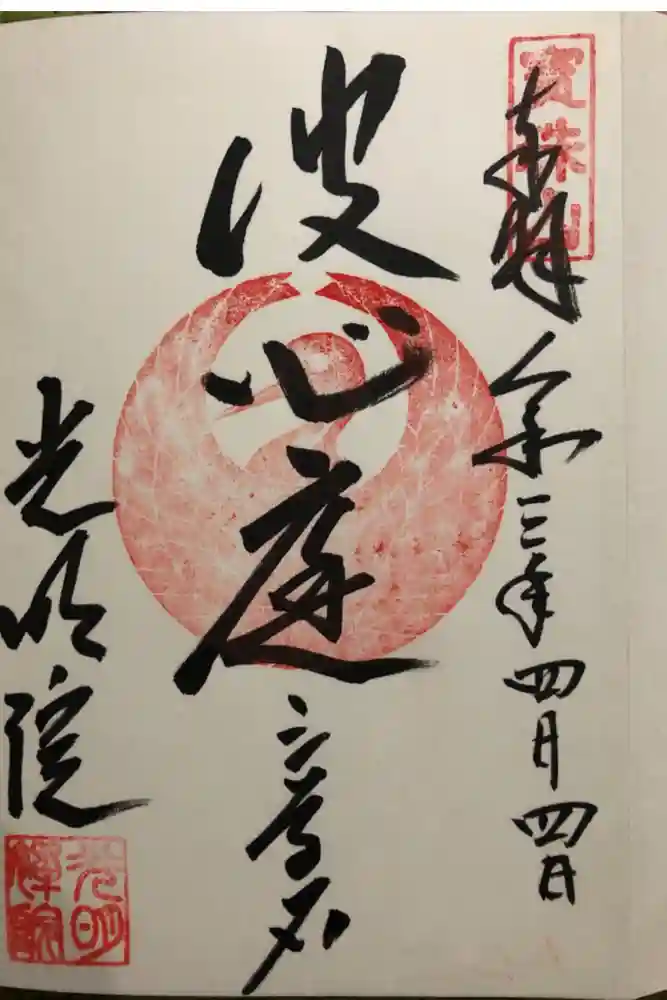 寶珠山
奉拝 令和三年四月四日
波心庭
三尊石
光明院
光明禅院